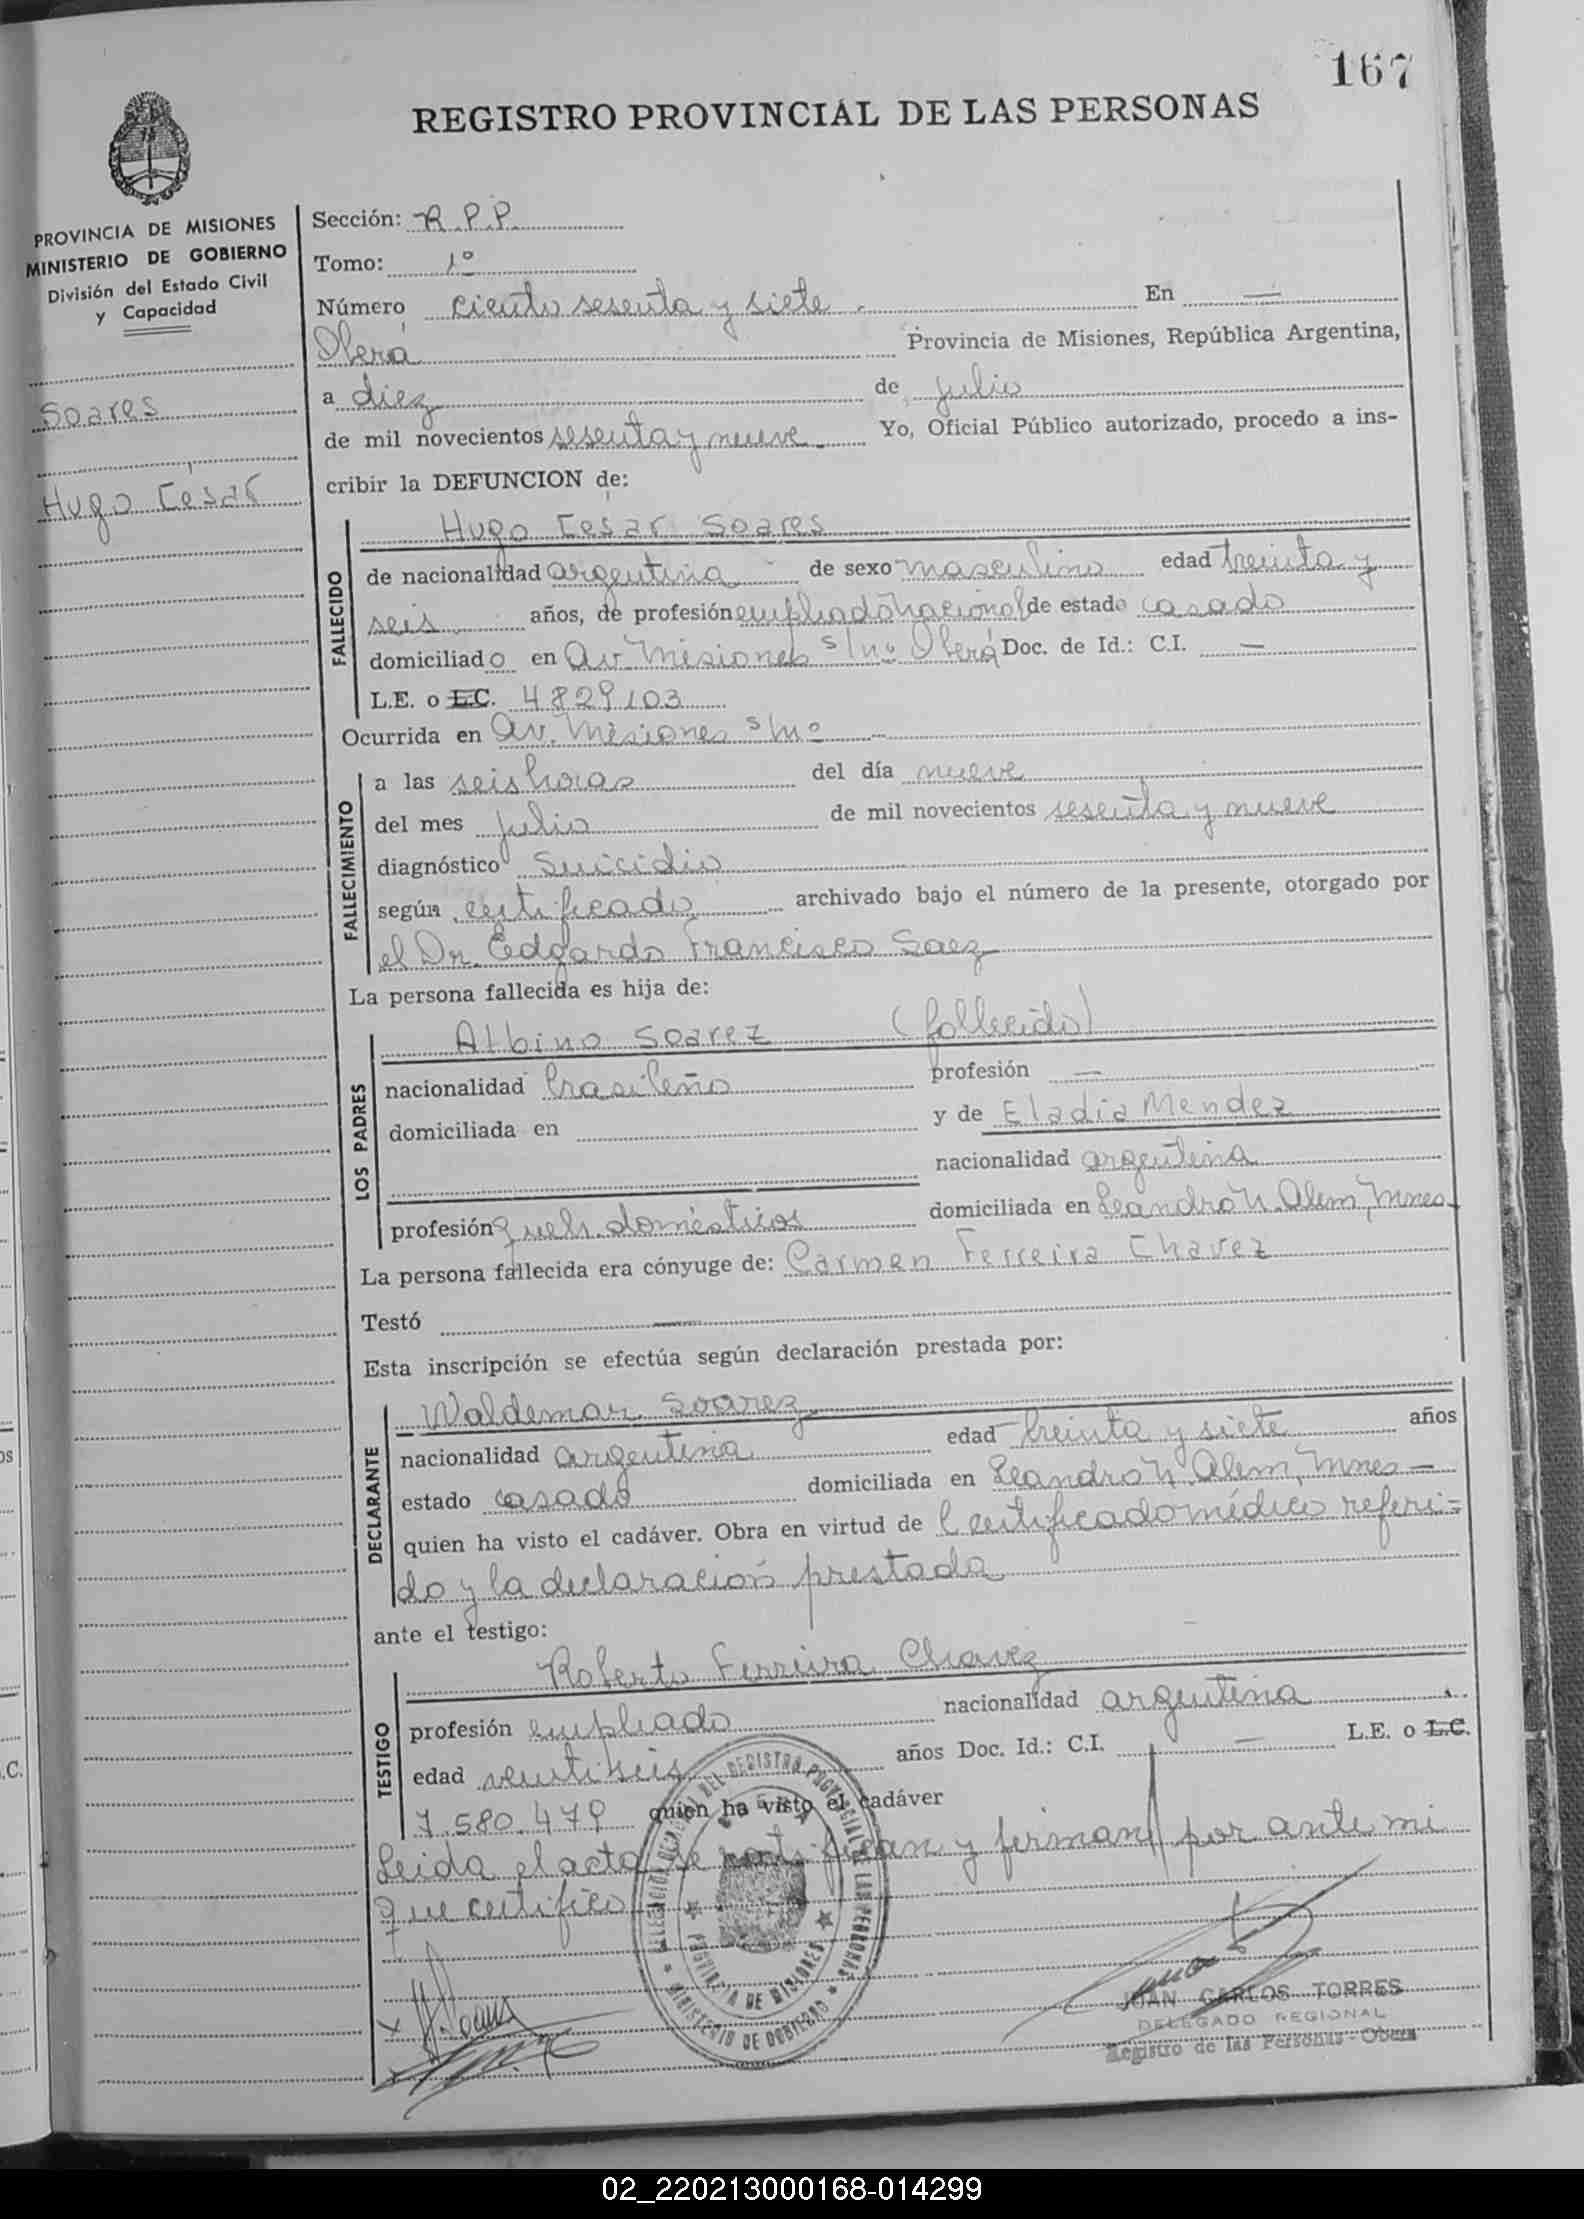 167
REGISTRO PROVINCIAL DE LAS PERSONAS
PROVINCIA DE MISIONES
MINISTERIO DE GOBIERNO
División del Estado Civil
y Capacidad
Soares
Hugo Cesar
Sección: R.P.P.
Tomo: 1º
Número ciento sesenta y siete. En —
Oberá Provincia de Misiones, República Argentina,
a diez de julio
de mil novecientos sesenta y nueve. Yo, Oficial Público autorizado, procedo a ins-
cribir la DEFUNCION de:
FALLECIDO
Hugo Cesar Soares
de nacionalidad argentina de sexo masculino edad treinta y
seis años, de profesión empleado nacional de estado casado
domiciliado en Av. Misiones s/nº Oberá Doc. de Id.: C.I. —
L.E. o L.C. 4829103
Ocurrida en Av. Misiones s/nº —
FALLECIMIENTO
a las seis horas del día nueve
del mes julio de mil novecientos sesenta y nueve
diagnóstico Suicidio
según certificado archivado bajo el número de la presente, otorgado por
el Dr. Edgardo Francisco Saez
La persona fallecida es hija de:
LOS PADRES
Albino Soarez (fallecido)
nacionalidad brasileño profesión —
domiciliada en y de Eladia Mendez
nacionalidad argentina
profesión queh. domésticos domiciliada en Leandro N. Alem, Mnes.
La persona fallecida era cónyuge de: Carmen Ferreira Chavez
Testó —
Esta inscripción se efectúa según declaración prestada por:
DECLARANTE
Waldemar Soarez
nacionalidad argentina edad treinta y siete años
estado casado domiciliada en Leandro N. Alem, Mnes —
quien ha visto el cadáver. Obra en virtud de l certificado médico referi-
do y la declaración prestada
ante el testigo:
TESTIGO
Roberto Ferreira Chavez
profesión empleado nacionalidad argentina
edad veintiseis años Doc. Id.: C.I. — L.E. o L.C.
7.580.479 quien ha visto el cadáver
Leida el acta se ratifican y firman por ante mi
que certifico
DELEGACION REGIONAL DEL REGISTRO PROVINCIAL DE LAS PERSONAS
OBERA
PROVINCIA DE MISIONES
MINISTERIO DE GOBIERNO
JUAN CARLOS TORRES
DELEGADO REGIONAL
Registro de las Personas - Obera
02_220213000168-014299